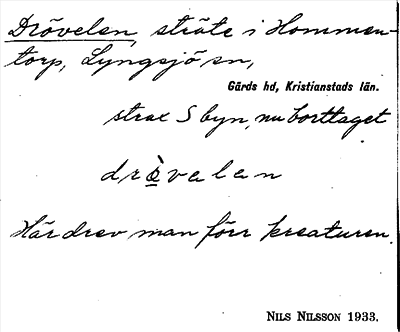 Drövelen, sträte i Hommen-
torp, Lyngsjö sn,
Gärds hd, Kristianstads län.
strax S byn, nu borttaget
drὲvelen
Här drev man förr kreaturen.
NILS NILSSON 1933.